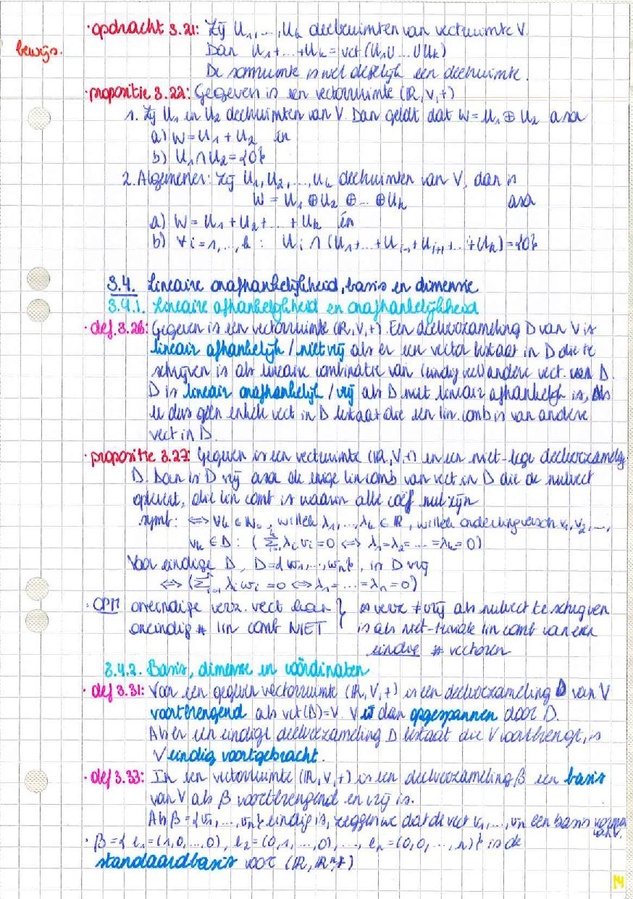 · opdracht 3.21: Zij U₁,...,Uₖ deelruimten van vectruimte V.
bewijs. Dan U₁+...+Uₖ = vct(U₁∪...∪Uₖ)
De somruimte is wel degelijk een deelruimte.
· propositie 3.22: Gegeven is een vectorruimte (ℝ,V,+)
1. Zij U₁ en U₂ deelruimten van V. Dan geldt dat W=U₁⊕U₂ asa
a) W=U₁+U₂ én
b) U₁∩U₂={0}
2. Algemener: Zij U₁,U₂,...,Uₖ deelruimten van V, dan is
W=U₁⊕U₂⊕...⊕Uₖ asa
a) W=U₁+U₂+...+Uₖ én
b) ∀i=1,...,k: Uᵢ∩(U₁+...+Uᵢ₋₁+Uᵢ₊₁+...+Uₖ)={0}
3.4. Lineaire onafhankelijkheid, basis en dimensie
3.4.1. Lineaire afhankelijkheid en onafhankelijkheid
· def.3.26: Gegeven is een vectorruimte (ℝ,V,+) Een deelverzameling D van V is
lineair afhankelijk/niet vrij als er een vector bestaat in D die te
schrijven is als lineaire combinatie van (eindig veel) andere vect. van D.
D is lineair onafhankelijk/vrij als D niet lineair afhankelijk is, Als
er dus geen enkele vect in D bestaat die een lin. comb is van andere
vect in D.
· propositie 3.27: Gegeven is een vectruimte (ℝ,V,+) en een niet-lege deelverzameling
D. Dan is D vrij asa de enige lin comb van vect in D die de nulvect
oplevert, die lin comb is waarin alle coëf nul zijn
symb: ⇔ ∀k∈ℕ₀, willek λ₁,...,λₖ∈ℝ, willek onderling versch v₁,v₂,...,
vₖ∈D: (Σλᵢvᵢ=0 ⇔ λ₁=λ₂=...=λₖ=0)
Voor eindige D, D={w₁,...,wₙ}, is D vrij
⇔ (Σλᵢwᵢ=0 ⇔ λ₁=...=λₙ=0)
· OPM oneindige verz. vect kan } is verz ≠ vrij als nulvect te schrijven
oneindig # lin comb NIET } is als niet-triviale lin comb van een
eindig # vectoren
3.4.2. Basis, dimensie en coördinaten
· def 3.31: Voor een gegeven vectorruimte (ℝ,V,+) is een deelverzameling D van V
voortbrengend als vct(D)=V. V is dan opgespannen door D.
Als er een eindige deelverzameling D bestaat die V voortbrengt, is
V eindig voortgebracht.
· def 3.33: In een vectorruimte (ℝ,V,+) is een deelverzameling β een basis
van V als β voortbrengend en vrij is.
Als β={v₁,...,vₙ} eindig is, zeggen we dat de vect v₁,...,vₙ een basis vormen
van V.
· β={e₁=(1,0,...,0), e₂=(0,1,...,0),..., eₙ=(0,0,...,1)} is de
standaardbasis voor (ℝ,ℝⁿ,+)
14